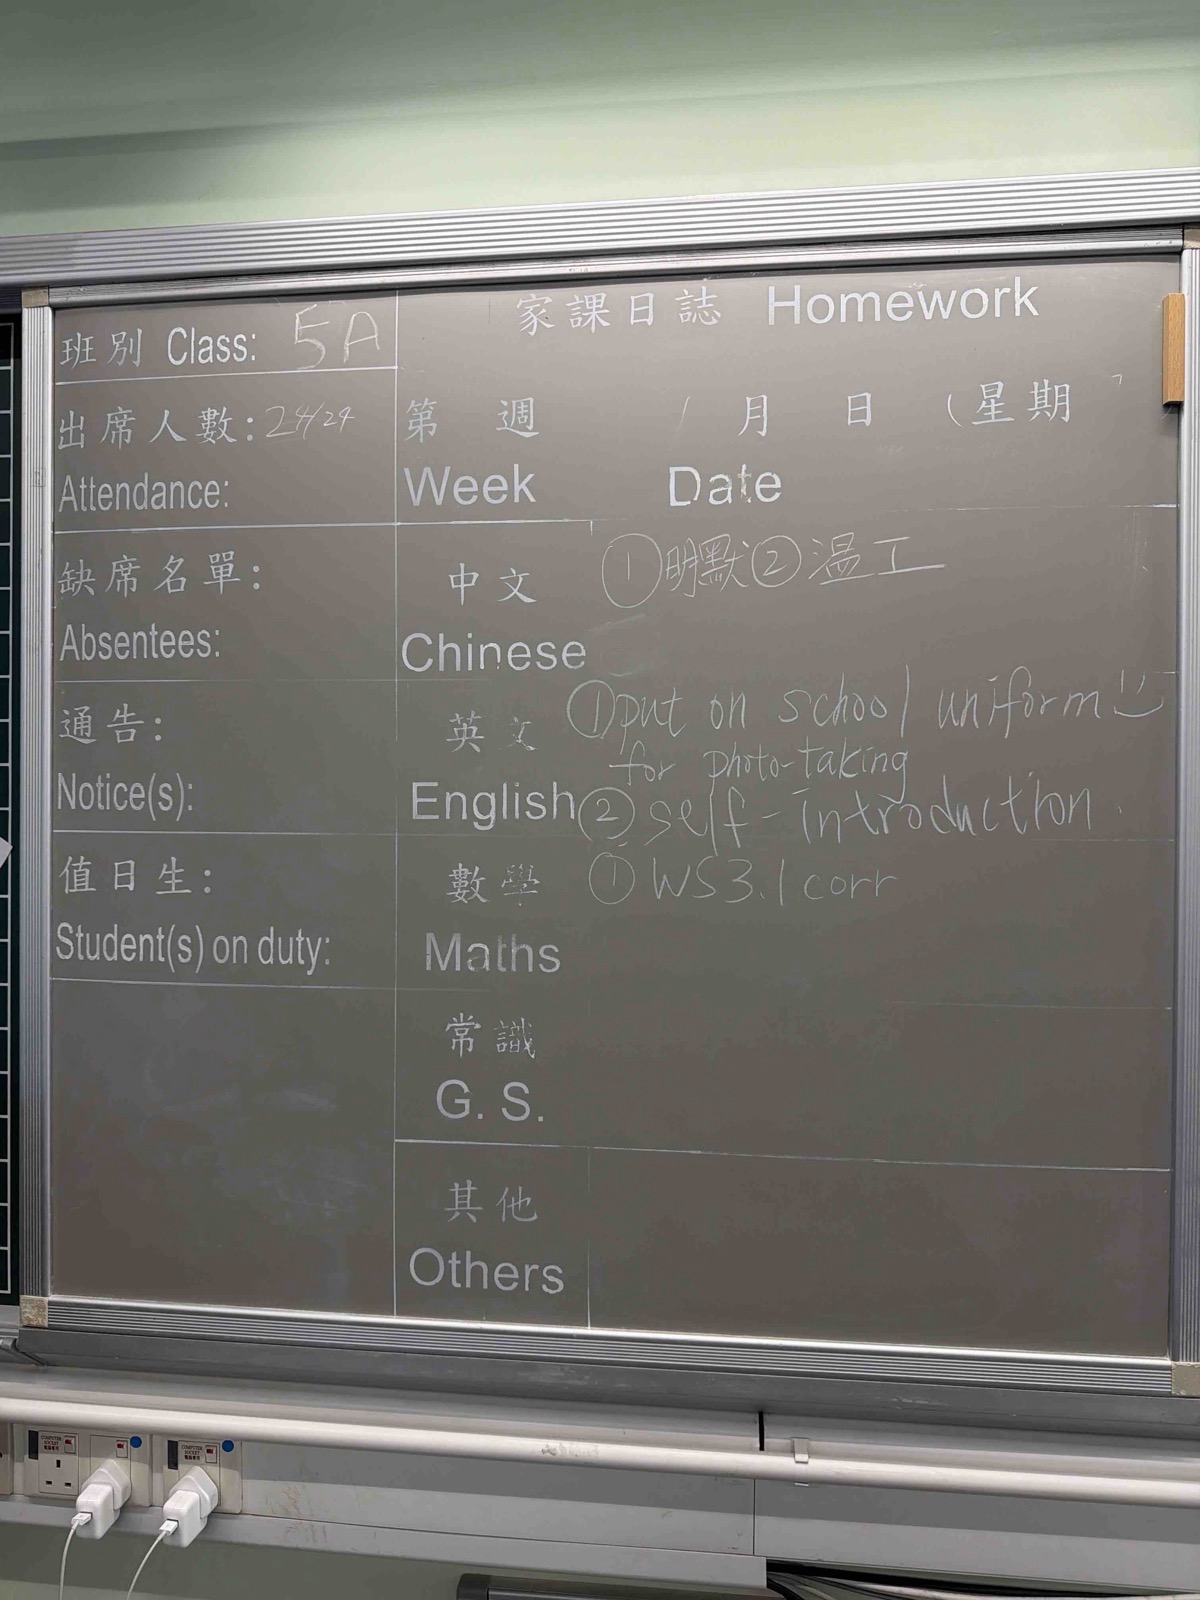 班別 Class: 5A
出席人數: 24/24
Attendance:
缺席名單:
Absentees:
通告:
Notice(s):
值日生:
Student(s) on duty:
家課日誌 Homework
第 週 月 日 (星期
Week Date
中文 ①明默②溫工
Chinese
英文 ①put on school uniform
for photo-taking
English ②self-introduction.
數學 ①WS3.1 corr
Maths
常識
G. S.
其他
Others
COMPUTER
SOCKET
COMPUTER
SOCKET